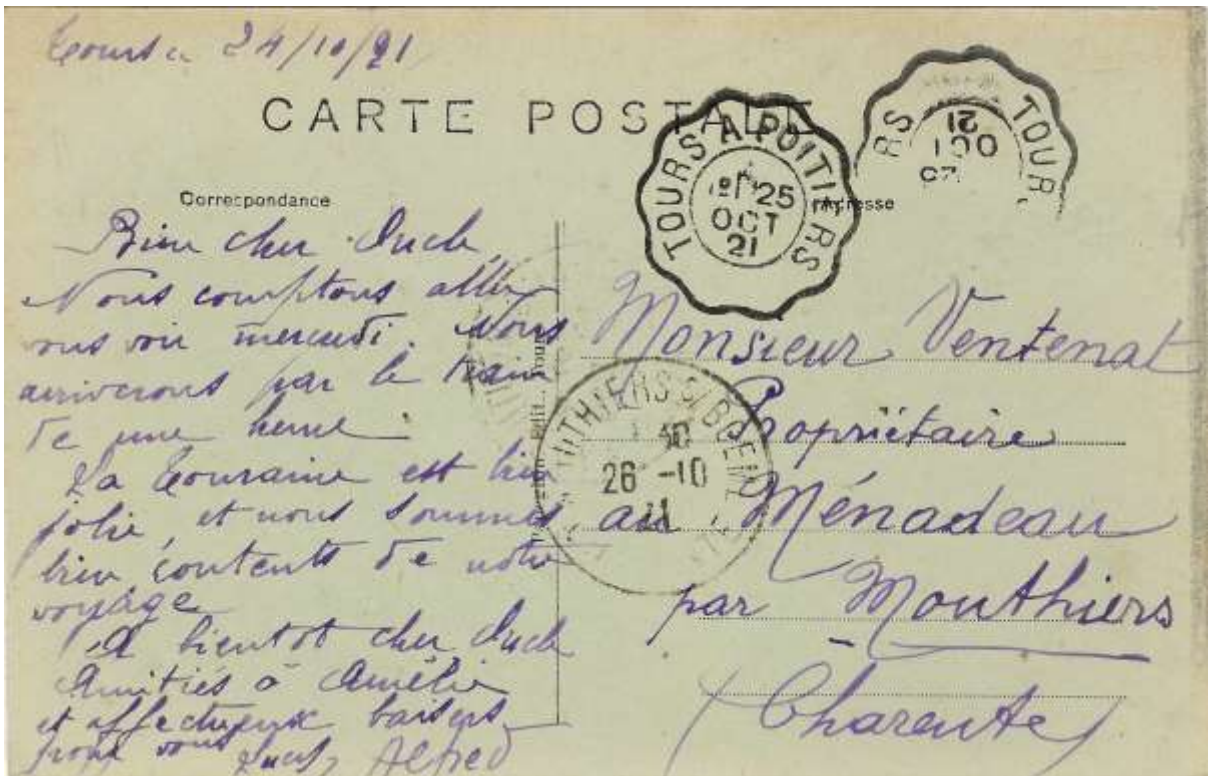 Tours le 24/10/21
CARTE POSTALE
Correspondance
Adresse
Bien cher Oncle
Nous comptons aller
vous voir mercredi. Nous
arriverons par le train
de une heure.
La Touraine est bien
jolie, et nous sommes
bien contents de notre
voyage
A bientot cher Oncle
Amitiés à Amélie
et affectueux baisers
pour vous
Alfred
TOURS A POITIERS
25
OCT
21
TOUR RS
OCT
21
MOUTHIERS S/BOEME
26 -10
21
Monsieur Ventenat
Propriétaire
au Ménadeau
par Mouthiers
(Charente)